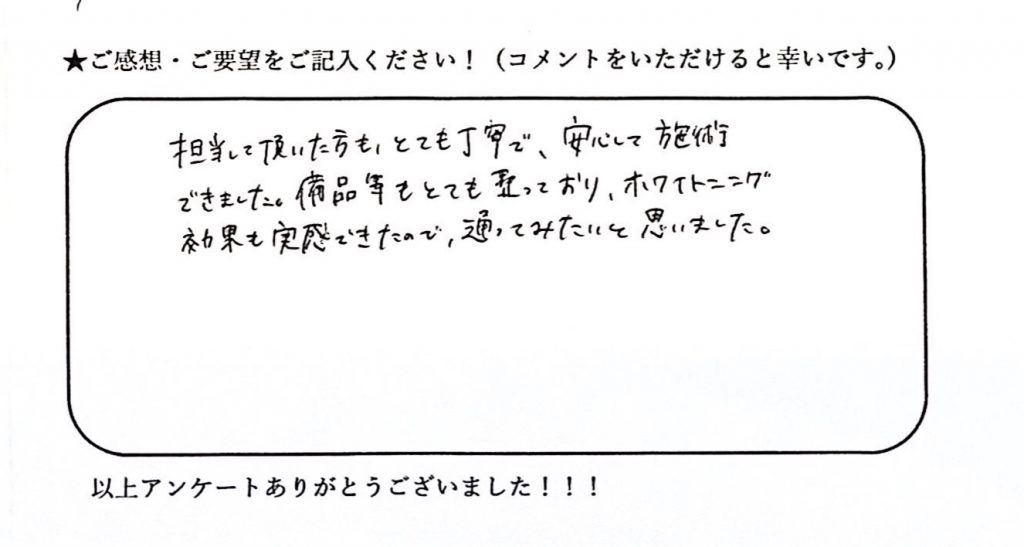 ★ご感想・ご要望をご記入ください！（コメントをいただけると幸いです。）
担当して頂いた方も、とても丁寧で、安心して施術
できました。備品等もとても整っており、ホワイトニング
効果も実感できたので、通ってみたいと思いました。
以上アンケートありがとうございました！！！